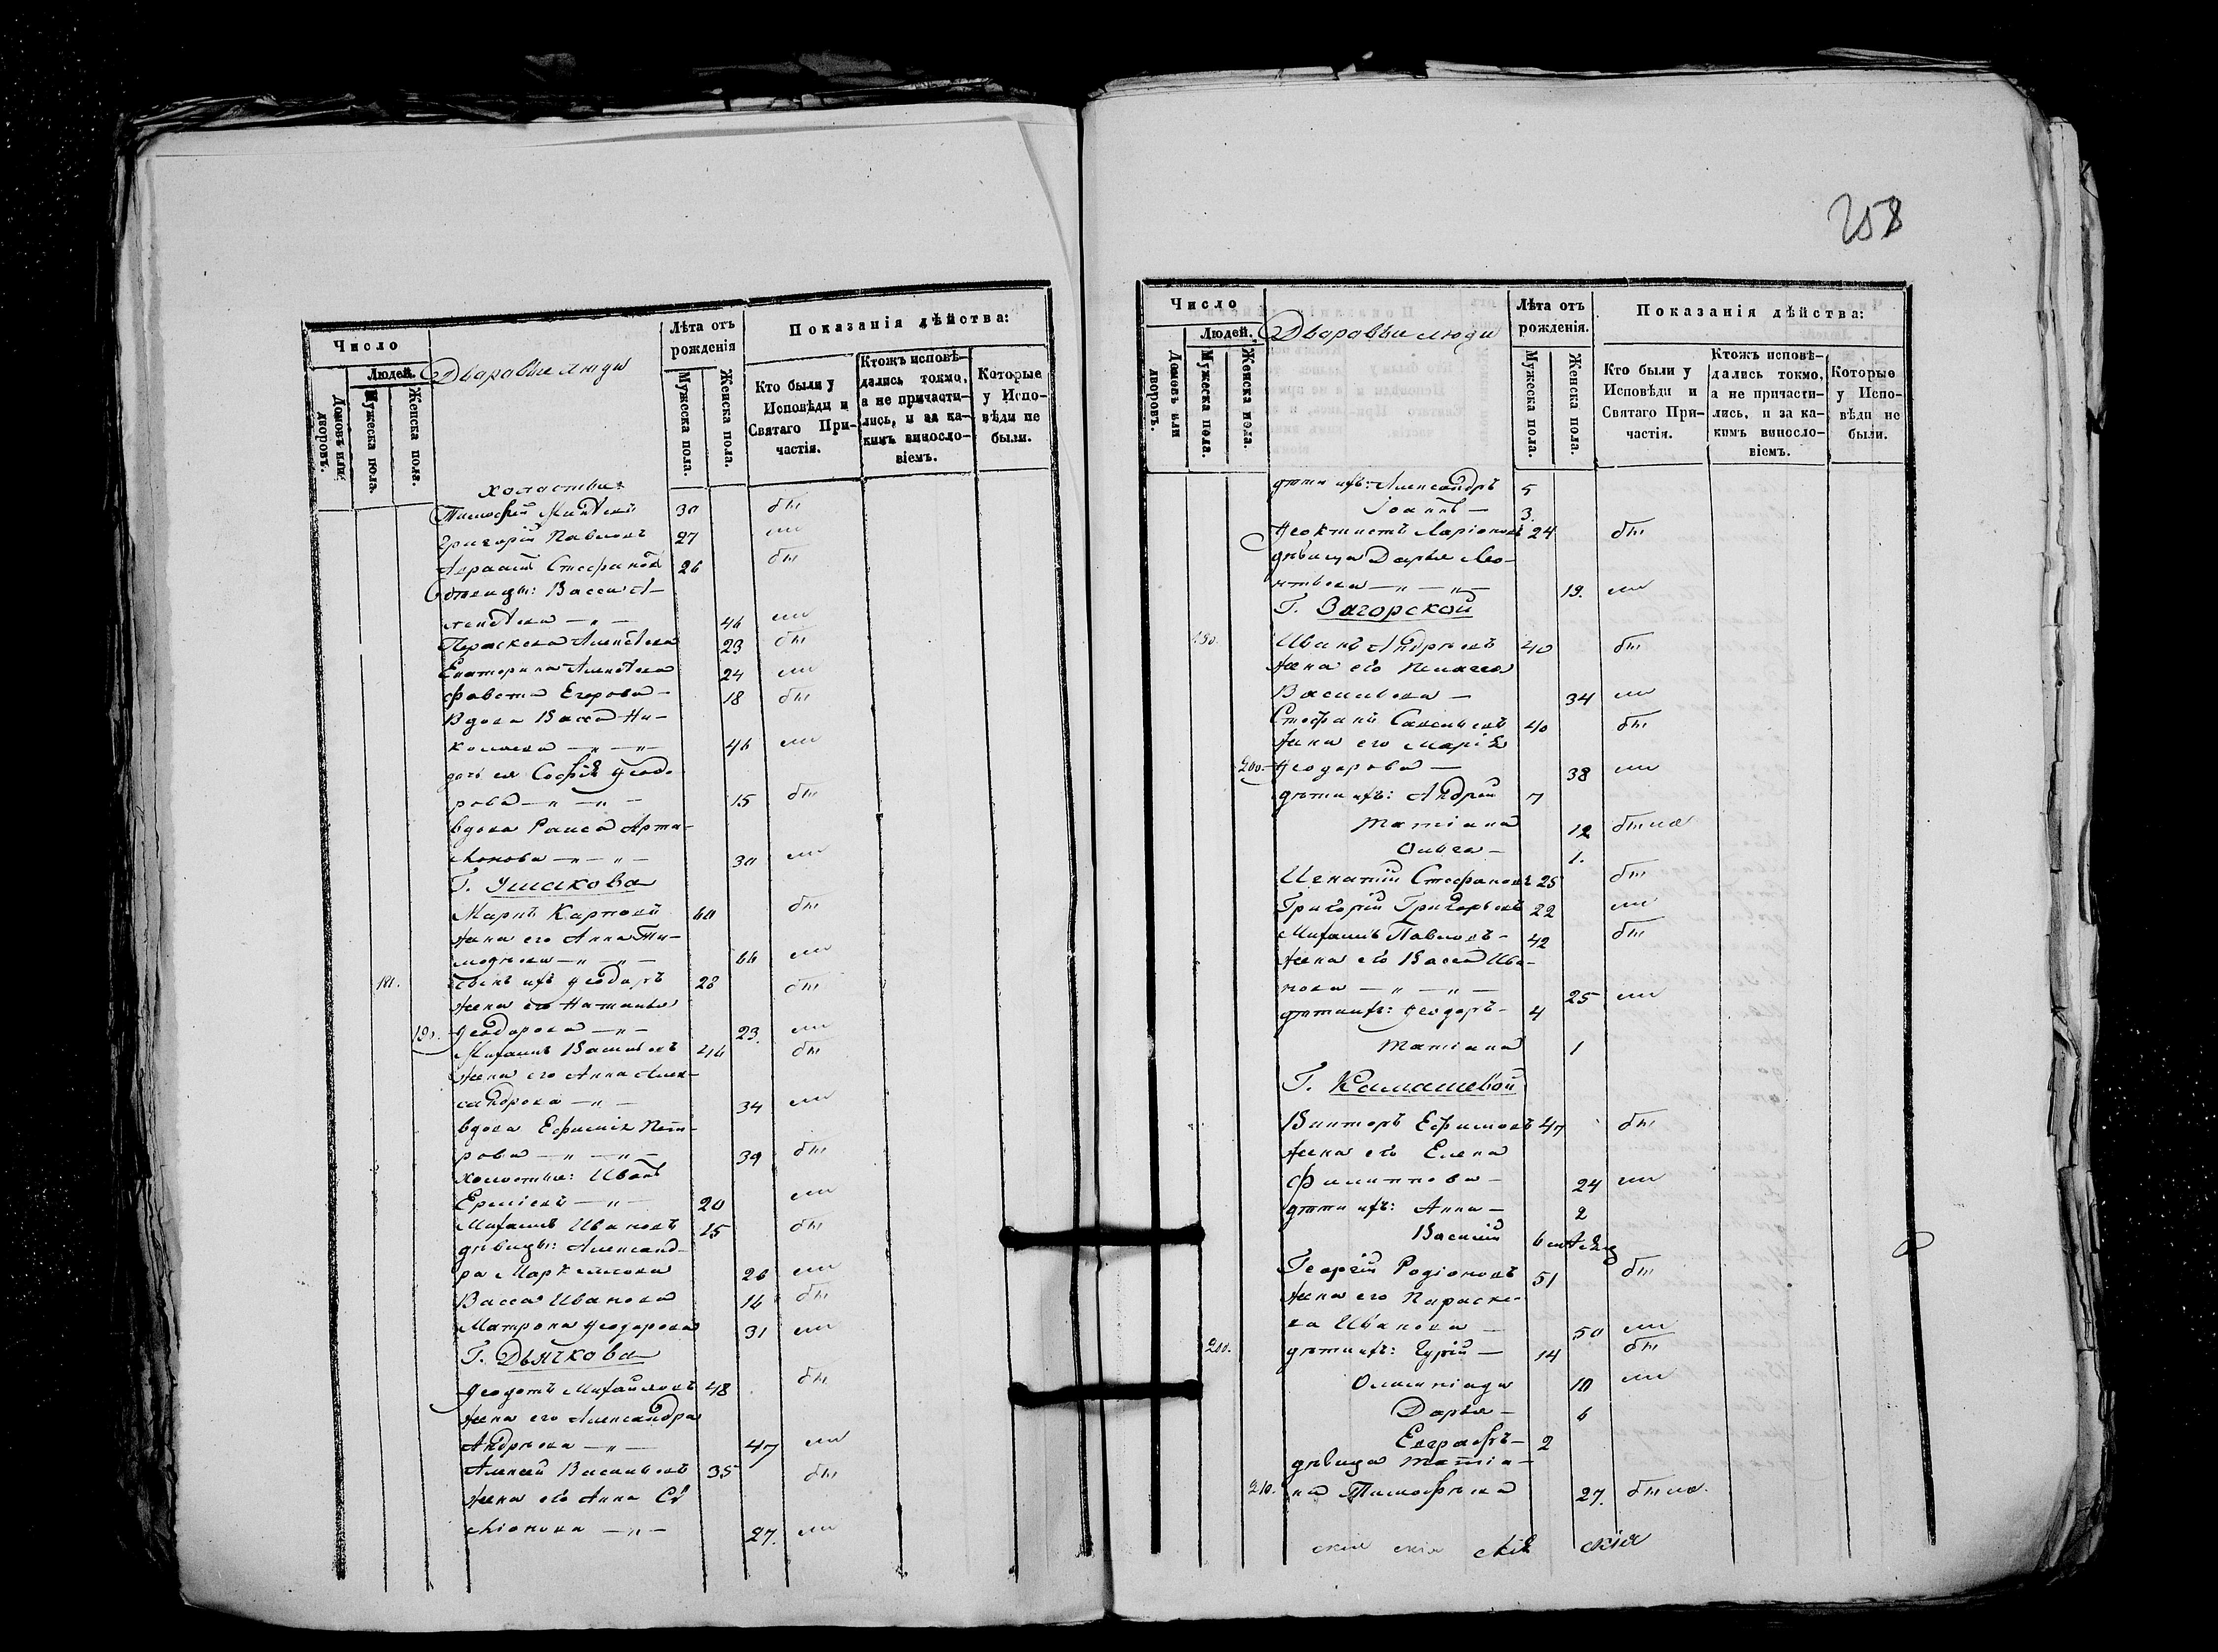 Число
Людей.
Домовъ или дворовъ.
Мужеска пола.
Женска пола.
Дворовые люди
Лѣта отъ рожденія
Мужеска пола.
Женска пола.
Показанія дѣйства:
Кто были у Исповѣди и Святаго Причастія.
Ктожъ исповѣдались токмо, а не причастились, и за какимъ винословіемъ.
Которые у Исповѣди не были.
холостые:
Тимофей 30 бы
Григорій Павловъ 27 ли
Стефановъ 26 бы
дѣвицы: Васса А-
лексѣева — „ — 46 ли
Параскева Алексѣева 23 бы
Екатерина Алексѣева 24 ли
Фавста Егорова — 18 бы
Вдова Васса Ни-
колаева — „ — „ — 46 ли
дочь ея Софія Ѳеодо-
рова — „ — „ — 15 бы
вдова Раиса Арта-
монова — „ — „ — 30 ли
Г. Ушакова
Маркъ Карповъ 60 бы
жена его Анна Ти-
моѳеева — „ — „ — 66 ли
181. сынъ ихъ Ѳеодоръ 28 бы
жена его Наталья
190. Ѳеодорова — „ — 23. ли
Михаилъ Васильевъ 44 бы
жена его Анна Алек-
сандрова — „ — 34 ли
вдова Ефимія Пет-
рова — „ — „ — 39 бы
холостые: Иванъ
— „ — 20 ли
Михаилъ Ивановъ 15 бы
дѣвицы: Александ-
ра Маркелова 26 ли
Васса Иванова 16 бы
Матрона Ѳеодорова 31 ли
Г. Дьячкова
Ѳеодотъ Михайловъ 48 бы
жена его Александра
Андреева — „ — 47 ли
Алексѣй Васильевъ 35 бы
жена его Анна Си-
міонова — „ — 27. ли
258
Число
Людей.
Домовъ или дворовъ.
Мужеска пола.
Женска пола.
Дворовые люди
Лѣта отъ рожденія.
Мужеска пола.
Женска пола.
Показанія дѣйства:
Кто были у Исповѣди и Святаго Причастія.
Ктожъ исповѣдались токмо, а не причастились, и за какимъ винословіемъ.
Которые у Исповѣди не были.
дѣти ихъ: Александръ 5
Іоаннъ — 3.
Ѳеоктистъ Ларіоновъ 24 бы
дѣвица Дарья Лео-
нтьева — „ — „ — 19. ли
Г. Загорской
190. Иванъ Андреевъ 40 бы
жена его Пелагея
Васильева — 34 ли
Стефанъ Савельевъ 40 бы
жена его Марія
200. Ѳеодорова — 38 ли
дѣти ихъ: Андрей 7
Татіана 12 была
Ольга — 1.
Игнатій Стефановъ 25 бы
Григорій Григорьевъ 22 ли
Михаилъ Павловъ — 42 бы
жена его Васса Ива-
нова — „ — „ — 25 ли
дѣти ихъ: Ѳеодоръ — 4
Татіана 1
Г. Камашевой
Викторъ Ефимовъ 47 бы
жена его Елена
Филиппова — 24 ли
дѣти ихъ: Анна — 2
Василій 6
Георгій Родіоновъ 51 бы
жена его Параске-
ва Иванова — 50 ли
200. дѣти ихъ: Гурій — 14 бы
Олимпіада 10 ли
Дарья — 6
Евграфъ — 2
дѣвица Татіа-
210. на Тимофеева 27. была.
скія скія скія скія